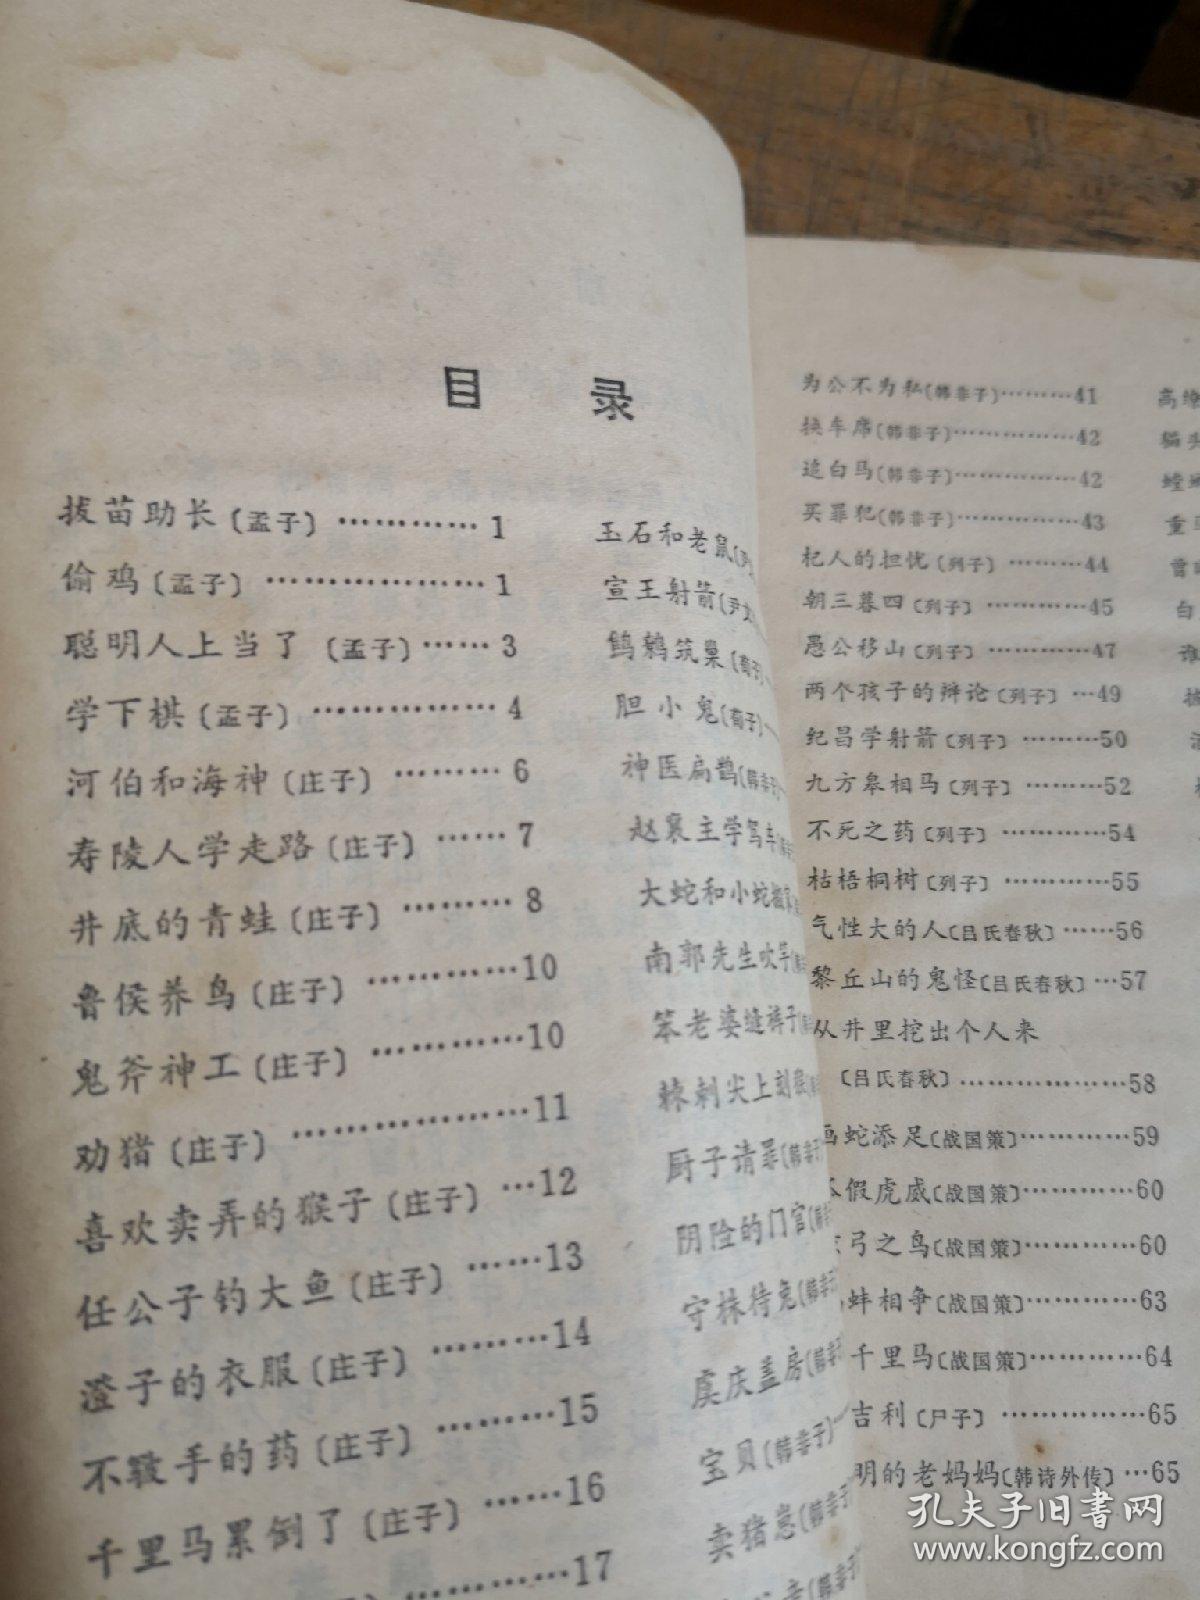 目 录
拔苗助长〔孟子〕…………1
偷鸡〔孟子〕………………1
聪明人上当了〔孟子〕……3
学下棋〔孟子〕……………4
河伯和海神〔庄子〕………6
寿陵人学走路〔庄子〕……7
井底的青蛙〔庄子〕………8
鲁侯养鸟〔庄子〕…………10
鬼斧神工〔庄子〕…………10
劝猪〔庄子〕………………11
喜欢卖弄的猴子〔庄子〕…12
任公子钓大鱼〔庄子〕……13
澄子的衣服〔庄子〕………14
不皲手的药〔庄子〕………15
千里马累倒了〔庄子〕……16
…………17
玉石和老鼠
宣王射箭〔尹文
鹪鹩筑巢〔荀子〕
胆小鬼〔荀子〕
神医扁鹊〔韩非子〕
赵襄主学驾车
大蛇和小蛇搬家
南郭先生吹竽
笨老婆缝裤子
棘刺尖上刻猴
厨子请罪〔韩非子
阴险的门官〔韩
守株待兔〔韩非子
虞庆盖房〔韩非子
宝贝〔韩非子〕
卖猪崽〔韩非子
为公不为私〔韩非子〕………41
换车席〔韩非子〕……………42
追白马〔韩非子〕……………42
买罪犯〔韩非子〕……………43
杞人的担忧〔列子〕………44
朝三暮四〔列子〕…………45
愚公移山〔列子〕…………47
两个孩子的辩论〔列子〕…49
纪昌学射箭〔列子〕………50
九方皋相马〔列子〕………52
不死之药〔列子〕…………54
枯梧桐树〔列子〕…………55
气性大的人〔吕氏春秋〕……56
黎丘山的鬼怪〔吕氏春秋〕…57
从井里挖出个人来
〔吕氏春秋〕…………………58
画蛇添足〔战国策〕…………59
假虎威〔战国策〕……………60
弓之鸟〔战国策〕……………60
蚌相争〔战国策〕……………63
千里马〔战国策〕……………64
吉利〔尸子〕………………65
明的老妈妈〔韩诗外传〕…65
孔夫子旧书网
www.kongfz.com